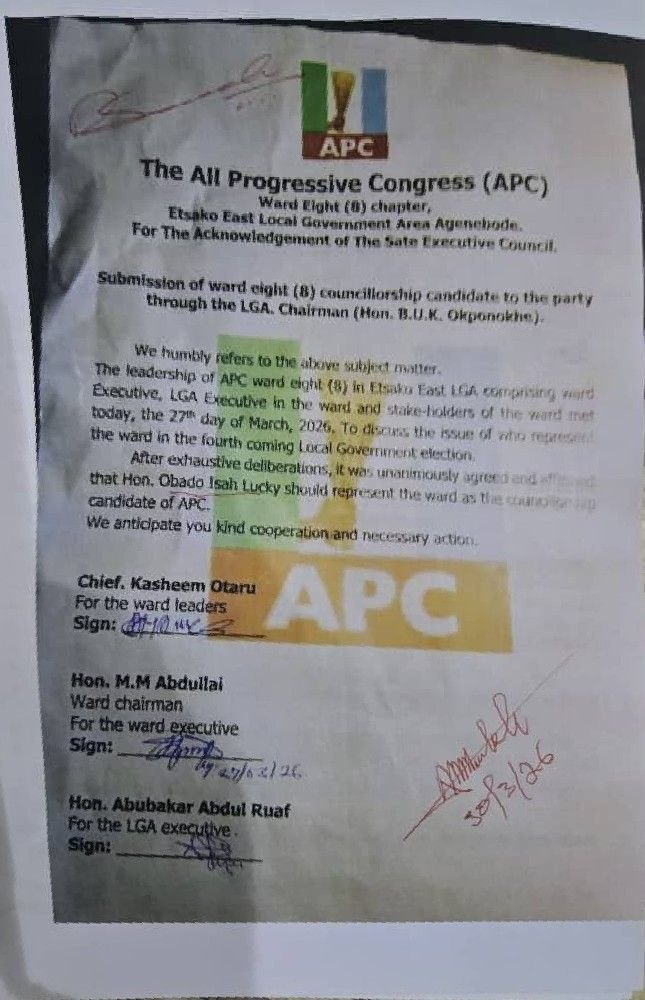 APC
The All Progressive Congress (APC)
Ward Eight (8) chapter,
Etsako East Local Government Area Agenebode.
For The Acknowledgement of The Sate Executive Council.
Submission of ward eight (8) councillorship candidate to the party
through the LGA. Chairman (Hon. B.U.K. Okponokhe).
We humbly refers to the above subject matter.
The leadership of APC ward eight (8) in Etsako East LGA comprising ward
Executive, LGA Executive in the ward and stake-holders of the ward met
today, the 27th day of March, 2026. To discuss the issue of who represent
the ward in the fourth coming Local Government election.
After exhaustive deliberations, it was unanimously agreed and
that Hon. Obado Isah Lucky should represent the ward as the councillorship
candidate of APC.
We anticipate you kind cooperation and necessary action.
APC
Chief. Kasheem Otaru
For the ward leaders
Sign:
Hon. M.M Abdullai
Ward chairman
For the ward executive
Sign:
27/03/26
30/3/26
Hon. Abubakar Abdul Ruaf
For the LGA executive.
Sign: